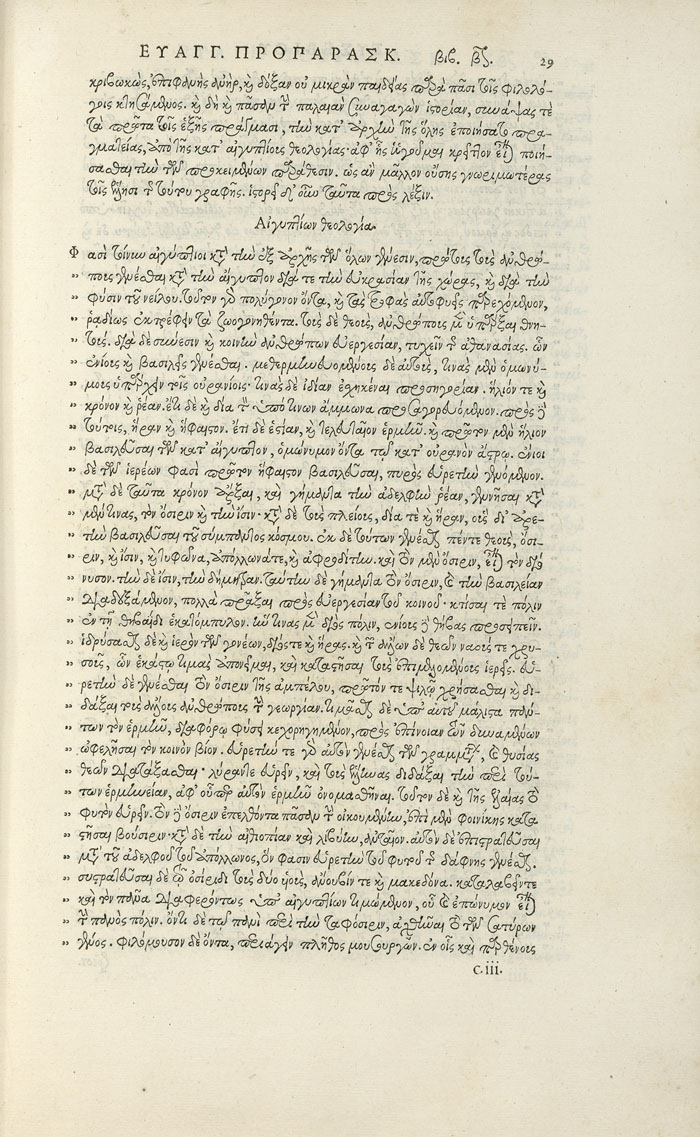 ΕΥΑΓΓ. ΠΡΟΠΑΡΑΣΚ. βιβ. β. 29
κριβωκὼς, ἐπιφανὴς ἀνὴρ, καὶ δόξαν οὐ μικρὰν παιδείας παρὰ πᾶσι τοῖς φιλολό-
γοις κτησάμενος. καὶ δὴ καὶ πᾶσαν τὴν παλαιὰν συναγαγὼν ἱστορίαν, συνάψας τὲ
τὰ πρῶτα τοῖς ἑξῆς πράγμασι, τὴν κατ' ἀρχὴν τῆς ὅλης ἐποιήσατο πρα-
γματείας, ἀπὸ τῆς κατ' αἰγυπτίους θεολογίας· ἀφ' ἧς ἡγοῦμαι κρεῖττον εἶναι ποιή-
σασθαι τὴν τῶν προκειμένων παράθεσιν. ὡς ἂν μᾶλλον οὔσης γνωριμωτέρας
τοῖς ἕλλησι τῆς τούτου γραφῆς. ἱστορεῖ δ' οὖν ταῦτα πρὸς λέξιν.
Αἰγυπτίων θεολογία.
Φασὶ τοίνυν αἰγύπτιοι κατὰ τὴν ἐξ ἀρχῆς τῶν ὅλων γένεσιν, πρώτους τοὺς ἀνθρώ-
» πους γενέσθαι κατὰ τὴν αἴγυπτον διά τε τὴν εὐκρασίαν τῆς χώρας, καὶ διὰ τὴν
» φύσιν τοῦ νείλου. τοῦτον γὰρ πολύγονον ὄντα, καὶ τὰς τροφὰς αὐτοφυεῖς παρεχόμενον,
» ῥαδίως ἐκτρέφειν τὰ ζωογονηθέντα. τοὺς δὲ θεοὺς, ἀνθρώπους μὲν ὑπάρξαι θνη-
» τούς. διὰ δὲ σύνεσιν καὶ κοινὴν ἀνθρώπων εὐεργεσίαν, τυχεῖν τῆς ἀθανασίας. ὧν
» ἐνίους καὶ βασιλεῖς γενέσθαι. μεθερμηνευομένους δὲ αὐτοὺς, τινὰς μὲν ὁμωνύ-
» μους ὑπάρχειν τοῖς οὐρανίοις· τινὰς δὲ ἰδίαν ἐσχηκέναι προσηγορίαν. ἥλιόν τε καὶ
» κρόνον καὶ ῥέαν. ἔτι δὲ καὶ δία τὸν ὑπό τινων ἄμμωνα προσαγορευόμενον. πρὸς δὲ
» τούτοις, ἥραν καὶ ἥφαιστον. ἔτι δὲ ἑστίαν, καὶ τελευταῖον ἑρμῆν. καὶ πρῶτον μὲν ἥλιον
» βασιλεῦσαι τῶν κατ' αἴγυπτον, ὁμώνυμον ὄντα τῷ κατ' οὐρανὸν ἄστρῳ. ἔνιοι
» δὲ τῶν ἱερέων φασὶ πρῶτον ἥφαιστον βασιλεῦσαι, πυρὸς εὑρετὴν γενόμενον.
» μετὰ δὲ ταῦτα κρόνον ἄρξαι, καὶ γήμαντα τὴν ἀδελφὴν ῥέαν, γεννῆσαι κατὰ
» μέν τινας, τὸν ὄσιριν καὶ τὴν ἶσιν· κατὰ δὲ τοὺς πλείους, δία τε καὶ ἥραν, οὓς δι' ἀρε-
» τὴν βασιλεῦσαι τοῦ σύμπαντος κόσμου. ἐκ δὲ τούτων γενέσθαι πέντε θεοὺς, ὄσι-
» ριν, καὶ ἶσιν, καὶ τυφῶνα, ἀπόλλωνά τε, καὶ ἀφροδίτην. καὶ τὸν μὲν ὄσιριν, εἶναι τὸν διό
» νυσον. τὴν δὲ ἶσιν, τὴν δήμητραν. ταύτην δὲ γήμαντα τὸν ὄσιριν, καὶ τὴν βασιλείαν
» διαδεξάμενον, πολλὰ πρᾶξαι πρὸς εὐεργεσίαν τοῦ κοινοῦ. κτίσαι τὲ πόλιν
» ἐν τῇ θηβαΐδι ἑκατόμπυλον. ἣν τινὰς μὲν διὸς πόλιν, ἐνίους δὲ θήβας προσειπεῖν.
» ἱδρύσασθαι δὲ καὶ ἱερὸν τῶν γονέων, διός τε καὶ ἥρας. καὶ τῶν ἄλλων δὲ θεῶν ναούς τε χρυ-
» σοῦς, ὧν ἑκάστῳ τιμὰς ἀπονεῖμαι, καὶ καταστῆσαι τοὺς ἐπιμελομένους ἱερεῖς. εὑ-
» ρετὴν δὲ γενέσθαι τὸν ὄσιριν τῆς ἀμπέλου, πρῶτόν τε ψιλῷ χρήσασθαι καὶ δι-
» δάξαι τοὺς ἄλλους ἀνθρώπους τὴν γεωργίαν. τιμᾶσθαι δὲ ὑπ' αὐτοῦ μάλιστα πάν-
» των τὸν ἑρμῆν, διαφόρῳ φύσει κεχορηγημένον, πρὸς ἐπίνοιαν τῶν δυναμένων
» ὠφελῆσαι τὸν κοινὸν βίον. εὑρετήν τε γὰρ αὐτὸν γενέσθαι τῶν γραμμάτων, καὶ θυσίας
» θεῶν διατάξασθαι· λύραν τε εὑρεῖν, καὶ τοὺς ἕλληνας διδάξαι τὴν περὶ τού-
» των ἑρμηνείαν, ἀφ' οὗπερ αὐτὸν ἑρμῆν ὀνομασθῆναι. τοῦτον δὲ καὶ τῆς ἐλαίας τὸ
» φυτὸν εὑρεῖν. τὸν δὲ ὄσιριν ἐπελθόντα πᾶσαν τὴν οἰκουμένην, ἐπὶ μὲν φοινίκης κατα
» στῆσαι βούσιριν· κατὰ δὲ τὴν αἰθιοπίαν καὶ λιβύην, ἀνταῖον. αὐτὸν δὲ ἐπιστρατεῦσαι
» μετὰ τοῦ ἀδελφοῦ τοῦ ἀπόλλωνος, ὅν φασιν εὑρετὴν τοῦ φυτοῦ τῆς δάφνης γενέσθαι.
» συστρατεῦσαι δὲ τῷ ὀσίριδι τοὺς δύο υἱοὺς, ἄνουβίν τε καὶ μακεδόνα. καταλαβόντε
» καὶ τὸν πᾶνα διαφερόντως ὑπ' αἰγυπτίων τιμώμενον, οὗ καὶ ἐπώνυμον εἶναι
» τὴν πανὸς πόλιν. ὄντι δὲ τῷ πανὶ περὶ τὴν ταφόσιριν, ἀχθῆναι τὸ τῶν σατύρων
» γένος. φιλόμουσον δὲ ὄντα, περιάγειν πλῆθος μουσουργῶν. ἐν οἷς καὶ παρθένοις
c.iii.